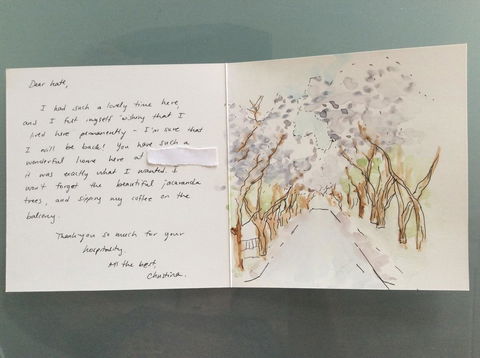 Dear Kate,
I had such a lovely time here,
and I felt myself wishing that I
lived here permanently - I'm sure that
I will be back! You have such a
wonderful home here at
it was exactly what I wanted. I
won't forget the beautiful jacaranda
trees, and sipping my coffee on the
balcony.
Thankyou so much for your
hospitality.
All the best,
Christina.